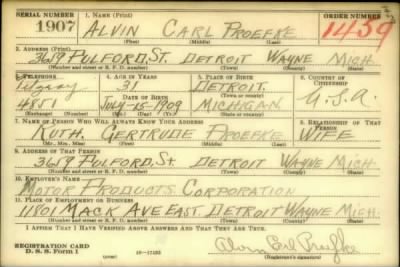 SERIAL NUMBER 1. NAME (Print) ORDER NUMBER
1907 ALVIN CARL PROEFKE 1459
(First) (Middle) (Last)
2. ADDRESS (Print)
3659 PULFORD, ST. DETROIT WAYNE MICH.
(Number and street or R. F. D. number) (Town) (County) (State)
3. TELEPHONE 4. AGE IN YEARS 5. PLACE OF BIRTH 6. COUNTRY OF CITIZENSHIP
31 DETROIT
DATE OF BIRTH
4851 JULY-15-1909 MICHIGAN. U.S.A.
(Exchange) (Number) (Mo.) (Day) (Yr.) (State or country)
7. NAME OF PERSON WHO WILL ALWAYS KNOW YOUR ADDRESS 8. RELATIONSHIP OF THAT PERSON
RUTH. GERTRUDE PROEFKE WIFE
(Mr., Mrs., Miss) (First) (Middle) (Last)
9. ADDRESS OF THAT PERSON
3659 PULFORD, St DETROIT WAYNE MICH
(Number and street or R. F. D. number) (Town) (County) (State)
10. EMPLOYER'S NAME
MOTOR PRODUCTS CORPORATION
11. PLACE OF EMPLOYMENT OR BUSINESS
11801 MACK AVE EAST. DETROIT WAYNE MICH.
(Number and street or R. F. D. number) (Town) (County) (State)
I AFFIRM THAT I HAVE VERIFIED ABOVE ANSWERS AND THAT THEY ARE TRUE.
REGISTRATION CARD
D. S. S. Form 1 Alvin Carl Proefke
(Registrant's signature)